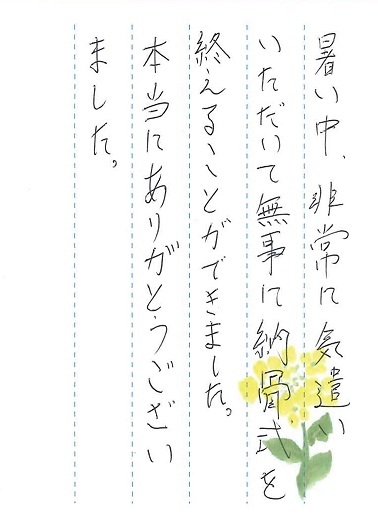 暑い中、非常に気遣い
いただいて無事に納骨式を
終えることができました。
本当にありがとうござい
ました。